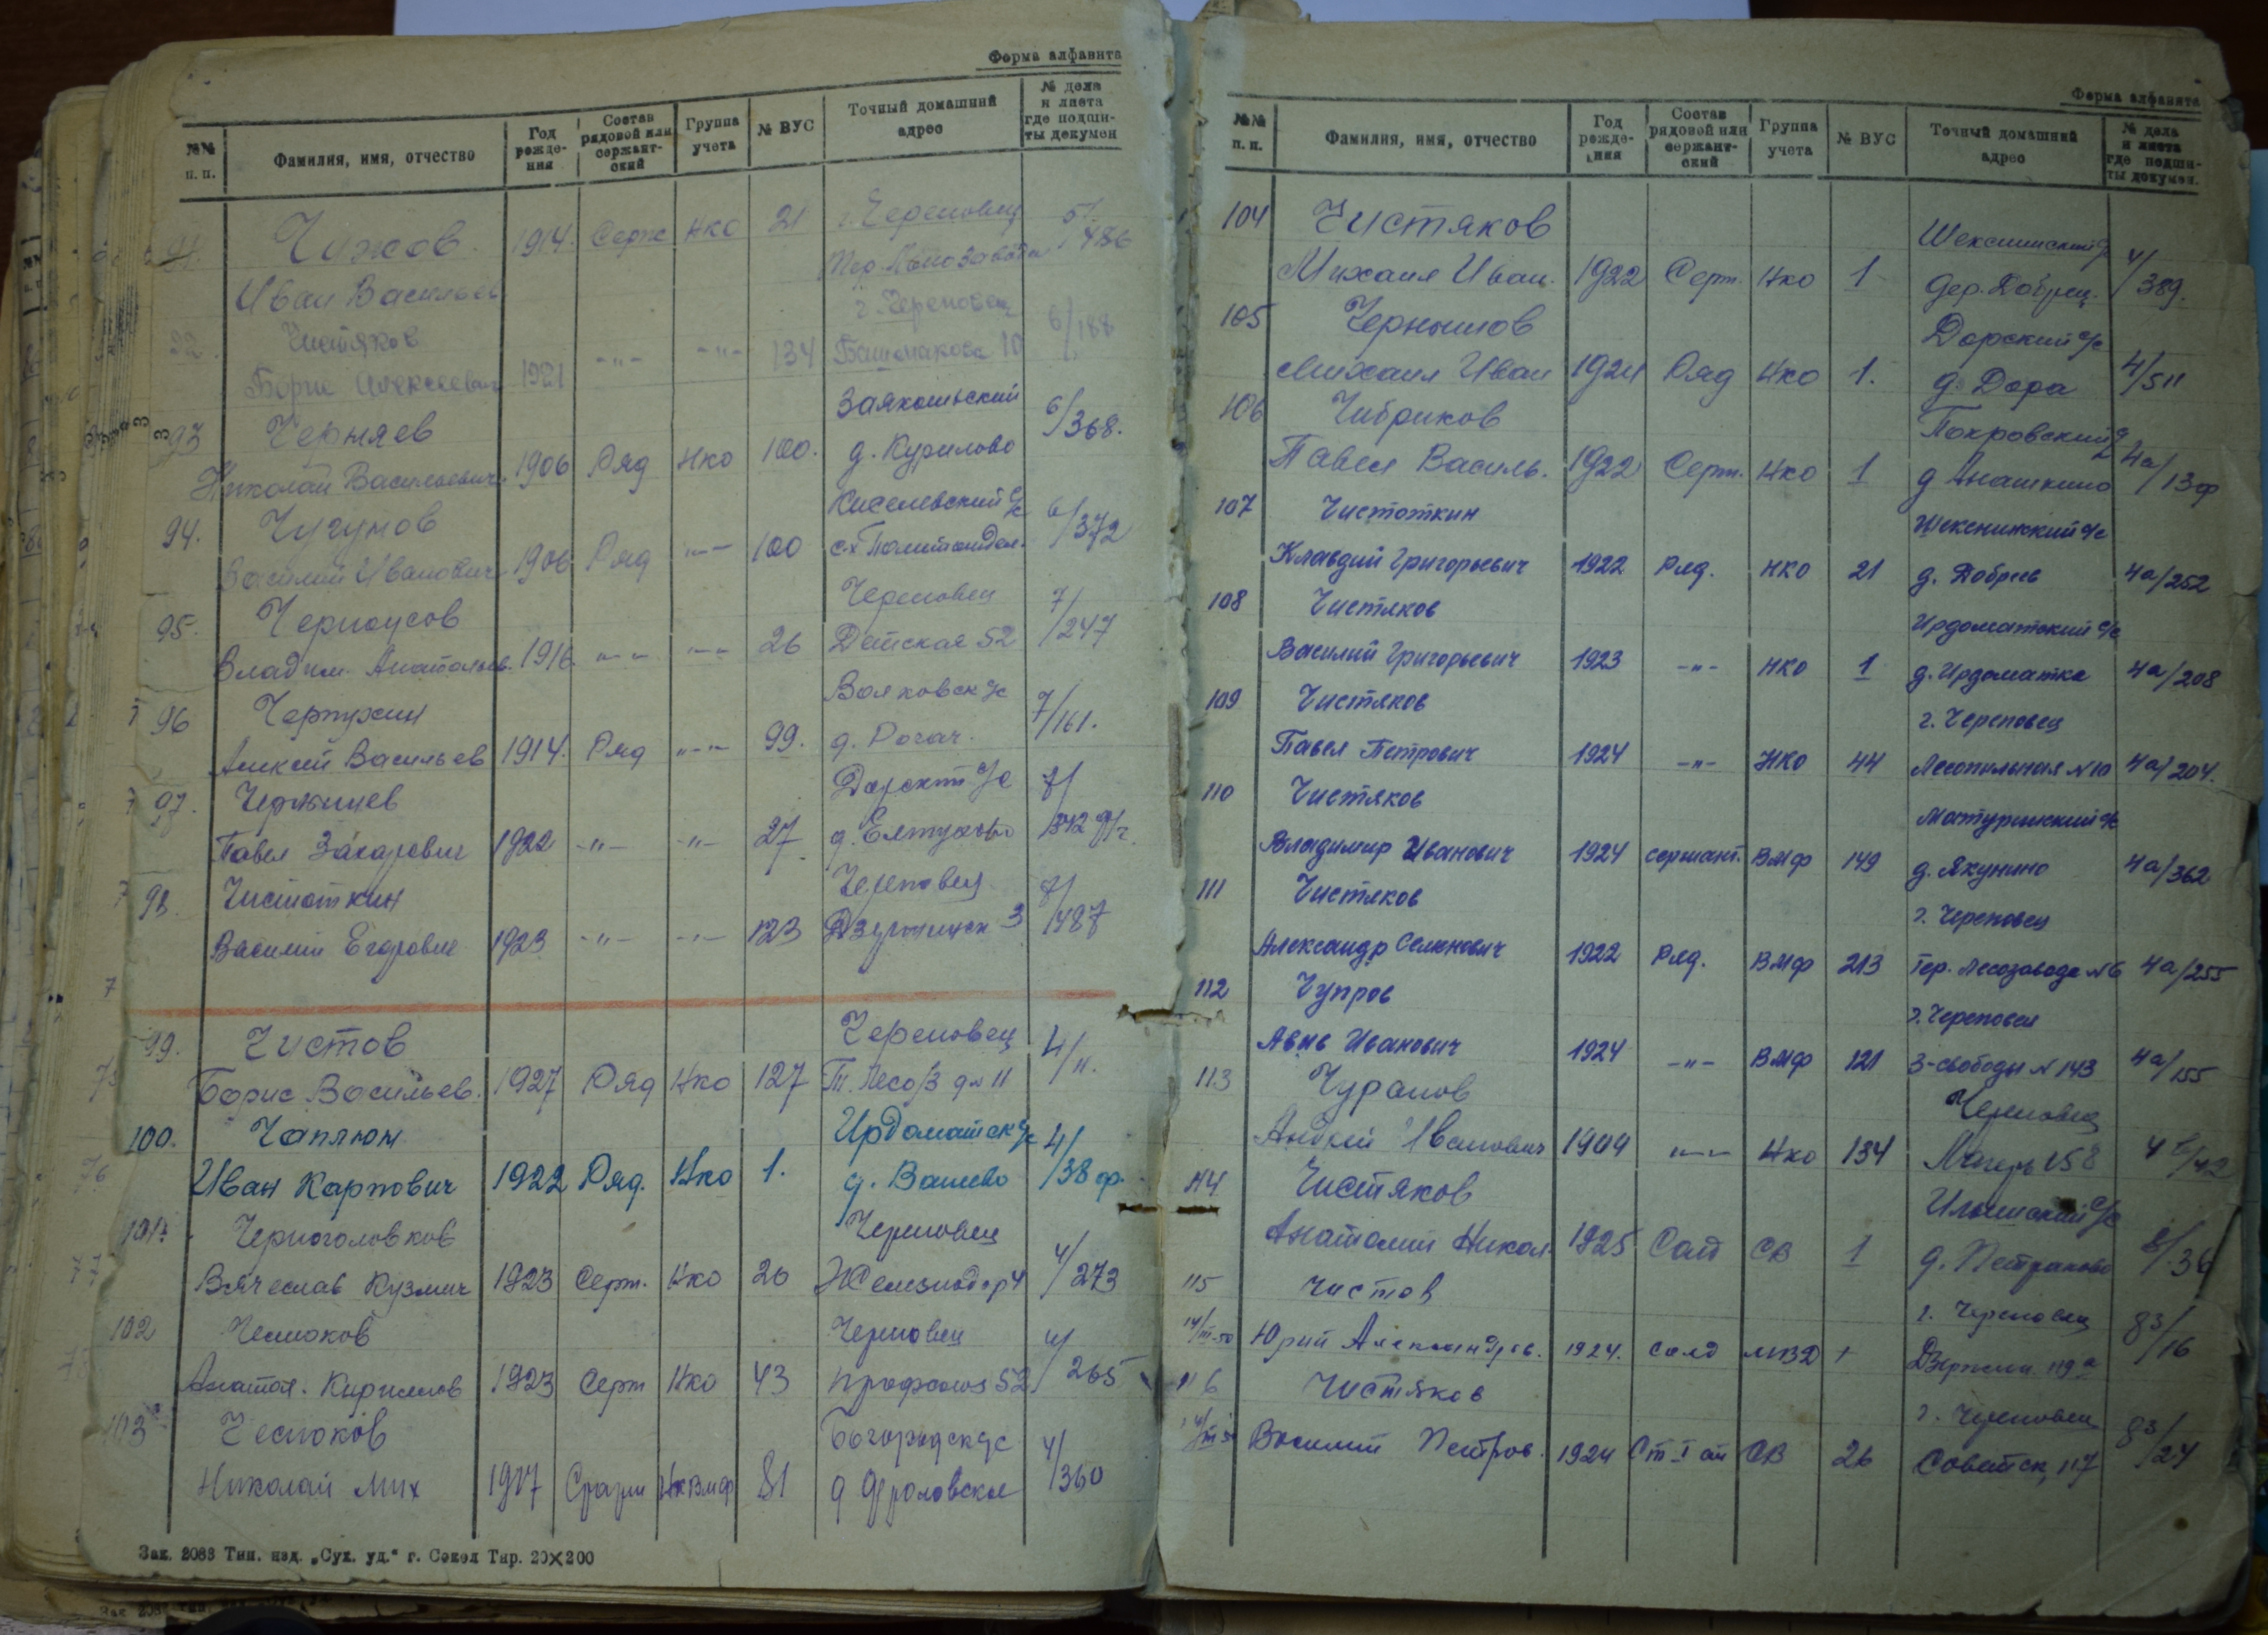 Форма алфавита
№№ п. п. Фамилия, имя, отчество Год рождения Состав рядовой или сержантский Группа учета № ВУС Точный домашний адрес № дела и листа где подшиты докумен
91. Чижов 1914. Серж НКО 21 г. Череповец 5/486
Иван Васильев
92. Чистяков г. Череповец 6/188
Борис Алексеевич 1921 -"- -"- 134 Башмакова 10
93 Черняев 6/368.
Николай Васильевич 1906 Ряд НКО 100. д. Курилово
94. Чугунов Киселевский с/с 6/372
Василий Иванович 1906 Ряд -"- 100
95. Черноусов Череповец 7/247
Владим. Анатольев. 1916. -"- -"- 26 Детская 52
96 Черпухин 7/161.
Алексей Васильев 1914. Ряд -"- 99. д. Рогач.
97. с/с
Павел Захарович 1922 -"- -"- 27 д. Елтухово
98. Чистоткин Череповец 7/487
Василий Егорович 1923 -"- -"- 123 Дзержинск 3
99. Чистов Череповец 4/11.
Борис Васильев. 1927 Ряд НКО 127 Т. Лесо/з д. 11
100. Чаплюк Ирдоматск с/с 4/38 ф.
Иван Карпович 1922 Ряд. НКО 1. д. Ванеево
101. Черноголовков Череповец 4/273
Вячеслав Кузмич 1923 Серж. НКО 26 Железнодор 4
102 Чесноков Череповец 4/265
Анатол. Кирилов 1923 Серж НКО 43 Профсоюз 52
103 Чесноков Богородск с/с 4/360
Николай Мих 1917 81 д Фроловское
Зак. 2083 Тип. изд. „Сух. уд.“ г. Сокол Тир. 20×200
Форма алфавита
№№ п. п. Фамилия, имя, отчество Год рождения Состав рядовой или сержантский Группа учета № ВУС Точный домашний адрес № дела и листа где подшиты докумен.
104 Чистяков 4/389.
Михаил Иван. 1922 Серж. НКО 1 дер. Добрец.
105 Чернышов Дорский с/с 4/511
Михаил Иван 1924 Ряд НКО 1. д. Дора
106 Чибриков Покровский 4а/13 ф
Павел Василь. 1922 Серж. НКО 1 д Анашкино
107 Чистоткин Шекснинский с/с
Клавдий Григорьевич 1922 Ряд. НКО 21 д. Добрец 4а/252
108 Чистяков Ирдоматский с/с
Василий Григорьевич 1923 -"- НКО 1 д. Ирдоматка 4а/208
109 Чистяков г. Череповец
Павел Петрович 1924 -"- НКО 44 Лесопильная №10 4а/204.
110 Чистяков Матуринский с/с
Владимир Иванович 1924 сержант. ВМФ 149 д. Якунино 4а/362
111 Чистяков г. Череповец
Александр Семенович 1922 Ряд. ВМФ 213 Тер. Лесозавода №6 4а/255
112 Чупров г. Череповец
Иванович 1924 -"- ВМФ 121 3-свободы №143 4а/155
113 Чуранов Череповец
Андрей Иванович 1904 -"- НКО 134
114 Чистяков Ильинский с/с
Анатолий Никол. 1925 Солд СВ 1 д. Петраково 8/36
115 Чистов г. Череповец 83/16
14/III-50 Юрий Александров. 1924. солд МВД 1 Дзержин. 119а
116 Чистяков г. Череповец 83/24
Василий Петров. 1924 СВ 26 Советск, 117